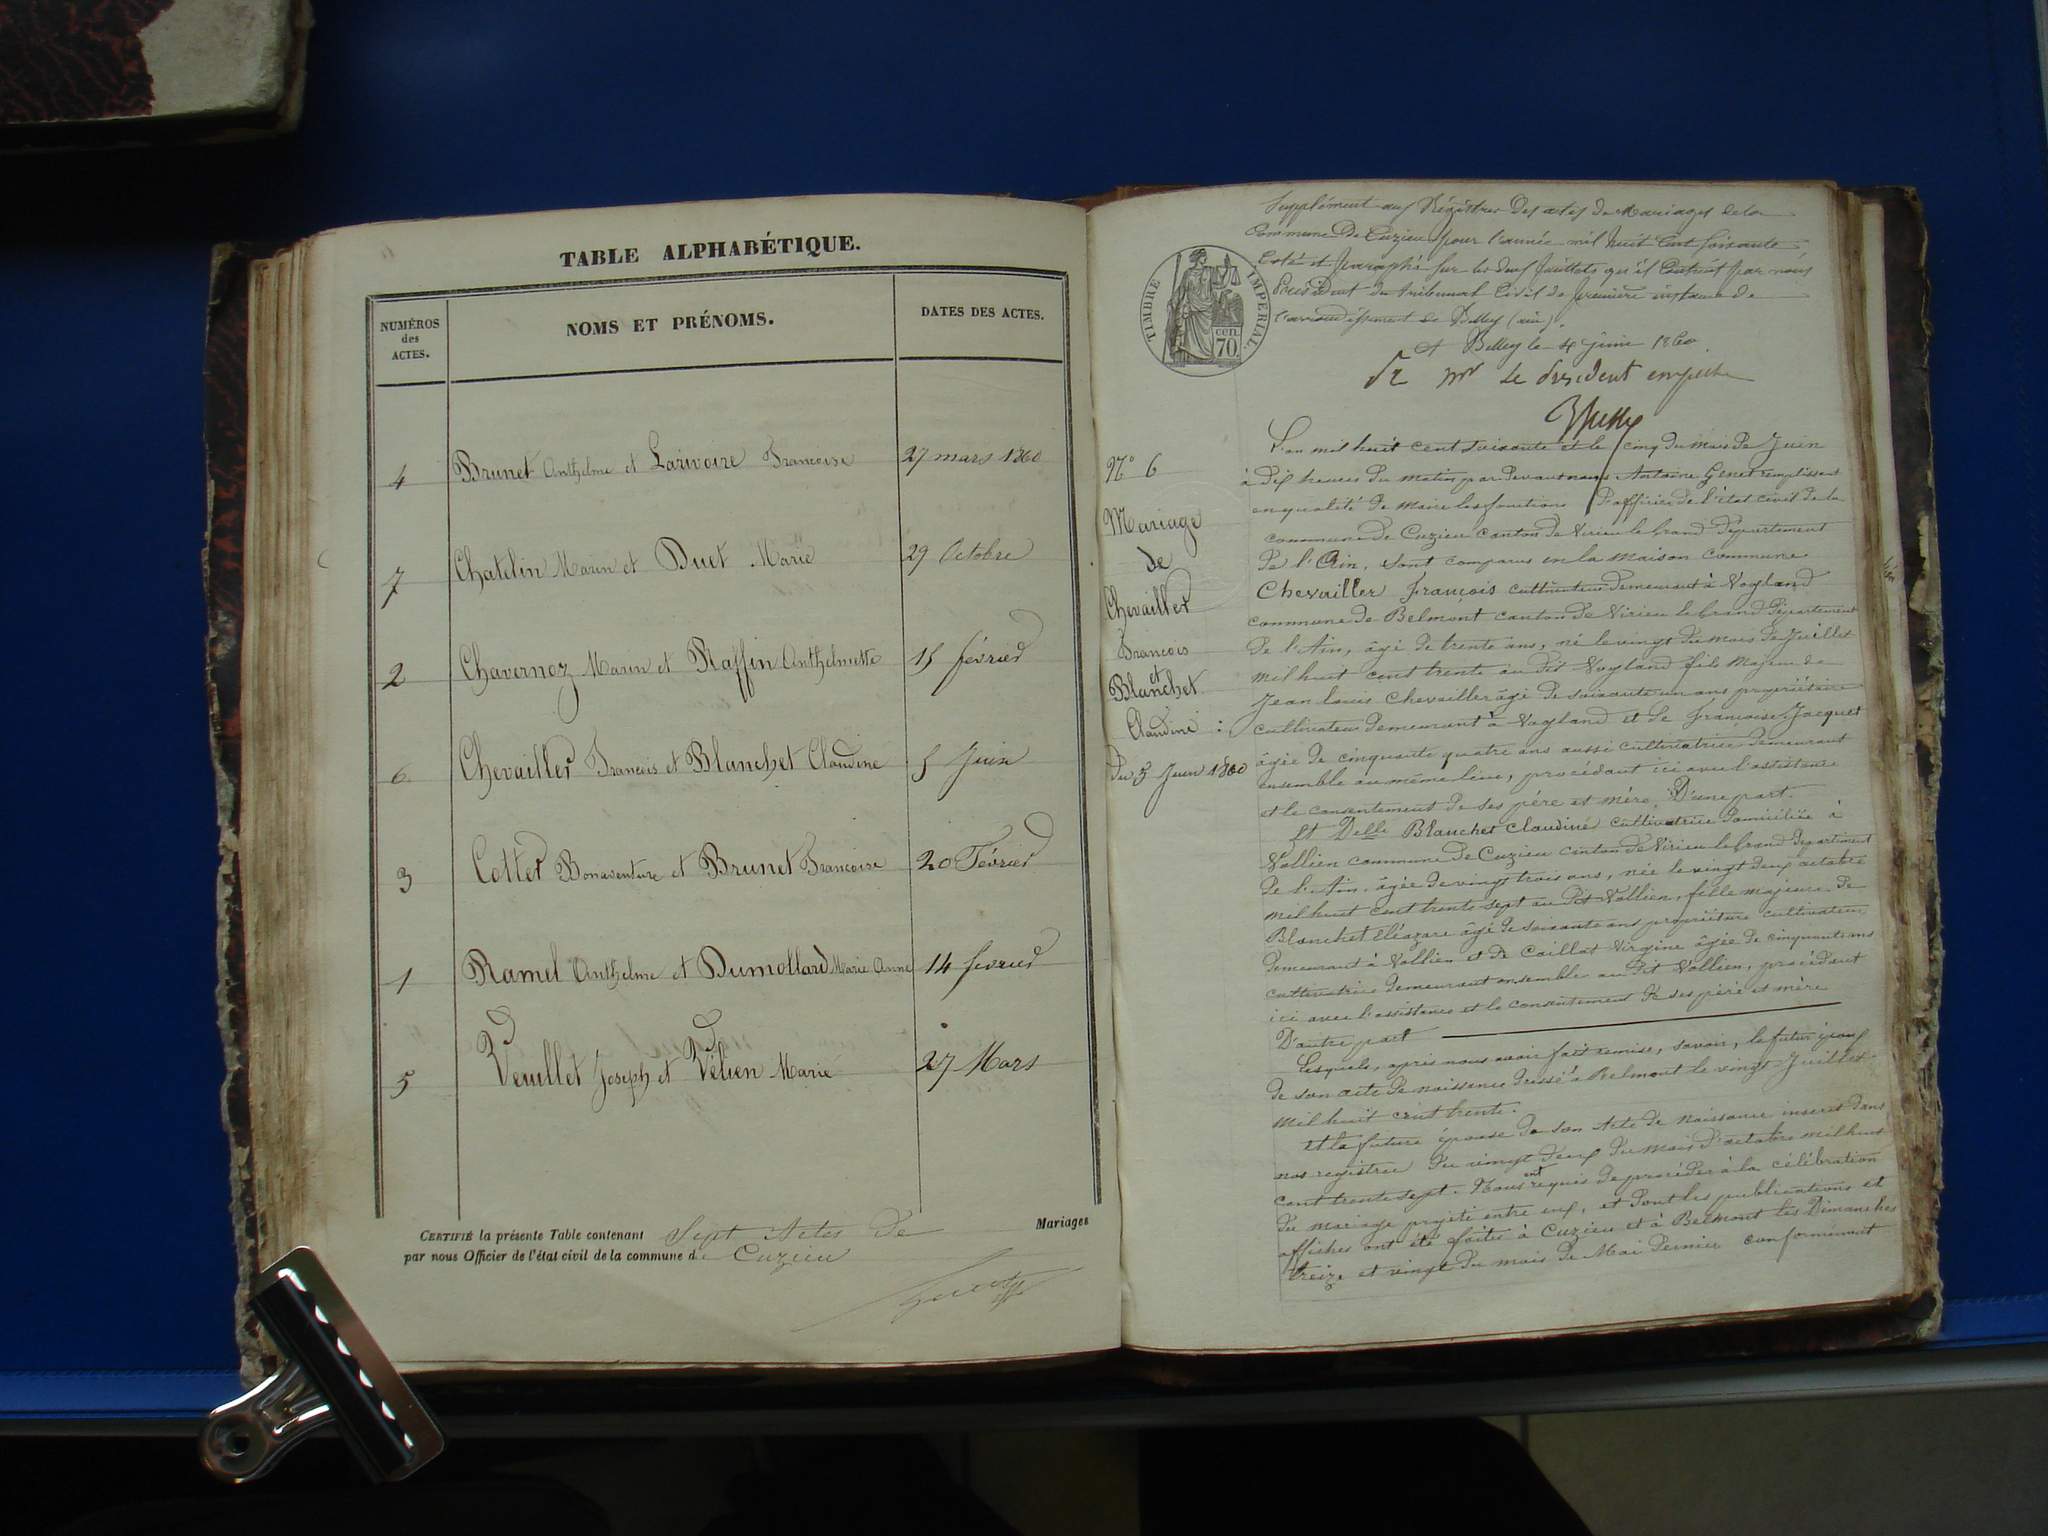 TABLE ALPHABÉTIQUE.
NUMÉROS des ACTES.
NOMS ET PRÉNOMS.
DATES DES ACTES.
4 Brunet Anthelme et Larivoire Francoise 27 mars 1860
7 Chatelin Marin et Duet Marie 29 Octobre
2 Chavernoz Marin et Raffin Anthelmette 15 février
6 Chevailler Francois et Blanchet Claudine 5 Juin
3 Cotter Bonaventure et Brunet Francoise 20 Février
1 Ramel Anthelme et Dumollard Marie Anne 14 fevrier
5 Veuillet Joseph et Vétien Marie 27 Mars
CERTIFIÉ la présente Table contenant Sept Actes de Mariages
par nous Officier de l'état civil de la commune de Cuzieu
Supplément aux Régistres des actes de Mariages de la
Commune de Cuzieu pour l'année mil huit Cent soixante
Coté et paraphé sur les deux feuillets qu'il Contient par nous
Président du tribunal Civil de première instance de
l'arrondissement de Belley (ain).
A Belley le 4 juin 1860.
Mr le président empeché
TIMBRE IMPÉRIAL
cen.
70.
N° 6
Mariage
de
Chevailler
Francois
et
Blanchet
Claudine :
Du 5 Juin 1860
L'an mil huit cent soixante et le cinq du mois de Juin
à dix heures du matin par devant nous Antoine Genet remplissant
en qualité de Maire les fonctions d'officier de l'état civil de la
commune de Cuzieu canton de Virieu le Grand Département
de l'Ain, sont comparus en la Maison commune
Chevailler François cultivateur demeurant à Vogland
commune de Belmont canton de Virieu le Grand Département
de l'Ain, âgé de trente ans, né le vingt du mois de Juillet
mil huit cent trente au dit Vogland fils Majeur de
Jean louis Chevailler âgé de soixante un ans propriétaire
cultivateur demeurant à Vogland et de Françoise Jacquet
âgée de cinquante quatre ans aussi cultivatrice demeurant
ensemble au même lieu, procédant ici avec l'assistance
et le consentement de ses père et mère, D'une part.
Et Delle Blanchet Claudine cultivatrice domiciliée à
Vollien commune de Cuzieu canton de Virieu le Grand Département
de l'Ain, âgée de vingt trois ans, née le vingt deux octobre
mil huit cent trente sept au dit Vollien, fille majeure de
Blanchet Eléazare âgé de soixante ans propriétaire cultivateur
demeurant à Vollien et de Caillat Virgine âgée de cinquante ans
cultivatrice demeurant ensemble au dit Vollien, procédant
ici avec l'assistance et le consentement de ses père et mère
D'autre part
Lesquels, après nous avoir fait remise, savoir, le futur époux
de son acte de naissance dressé à Belmont le vingt Juillet
mil huit cent trente.
et la future épouse de son Acte de Naissance inseré dans
nos registres du vingt deux du mois d'octobre mil huit
cent trente sept. Nous ont requis de procéder à la célébration
du mariage projeté entre eux, et dont les publications et
affiches ont été faites à Cuzieu et à Belmont les Dimanches
treize et vingt du mois de Mai Dernier conformément